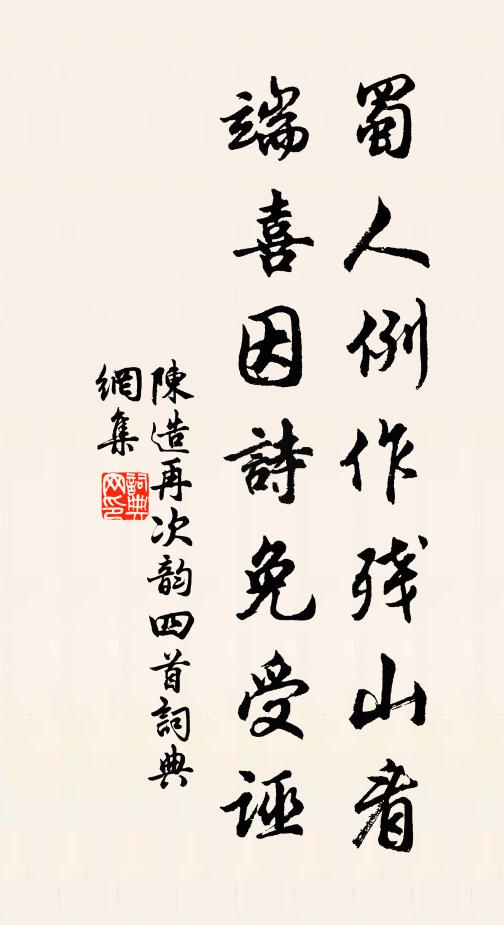 蜀人例作残山看
端喜因詩免受誣
陳造再次韵四首詞典
網集
詞典网印